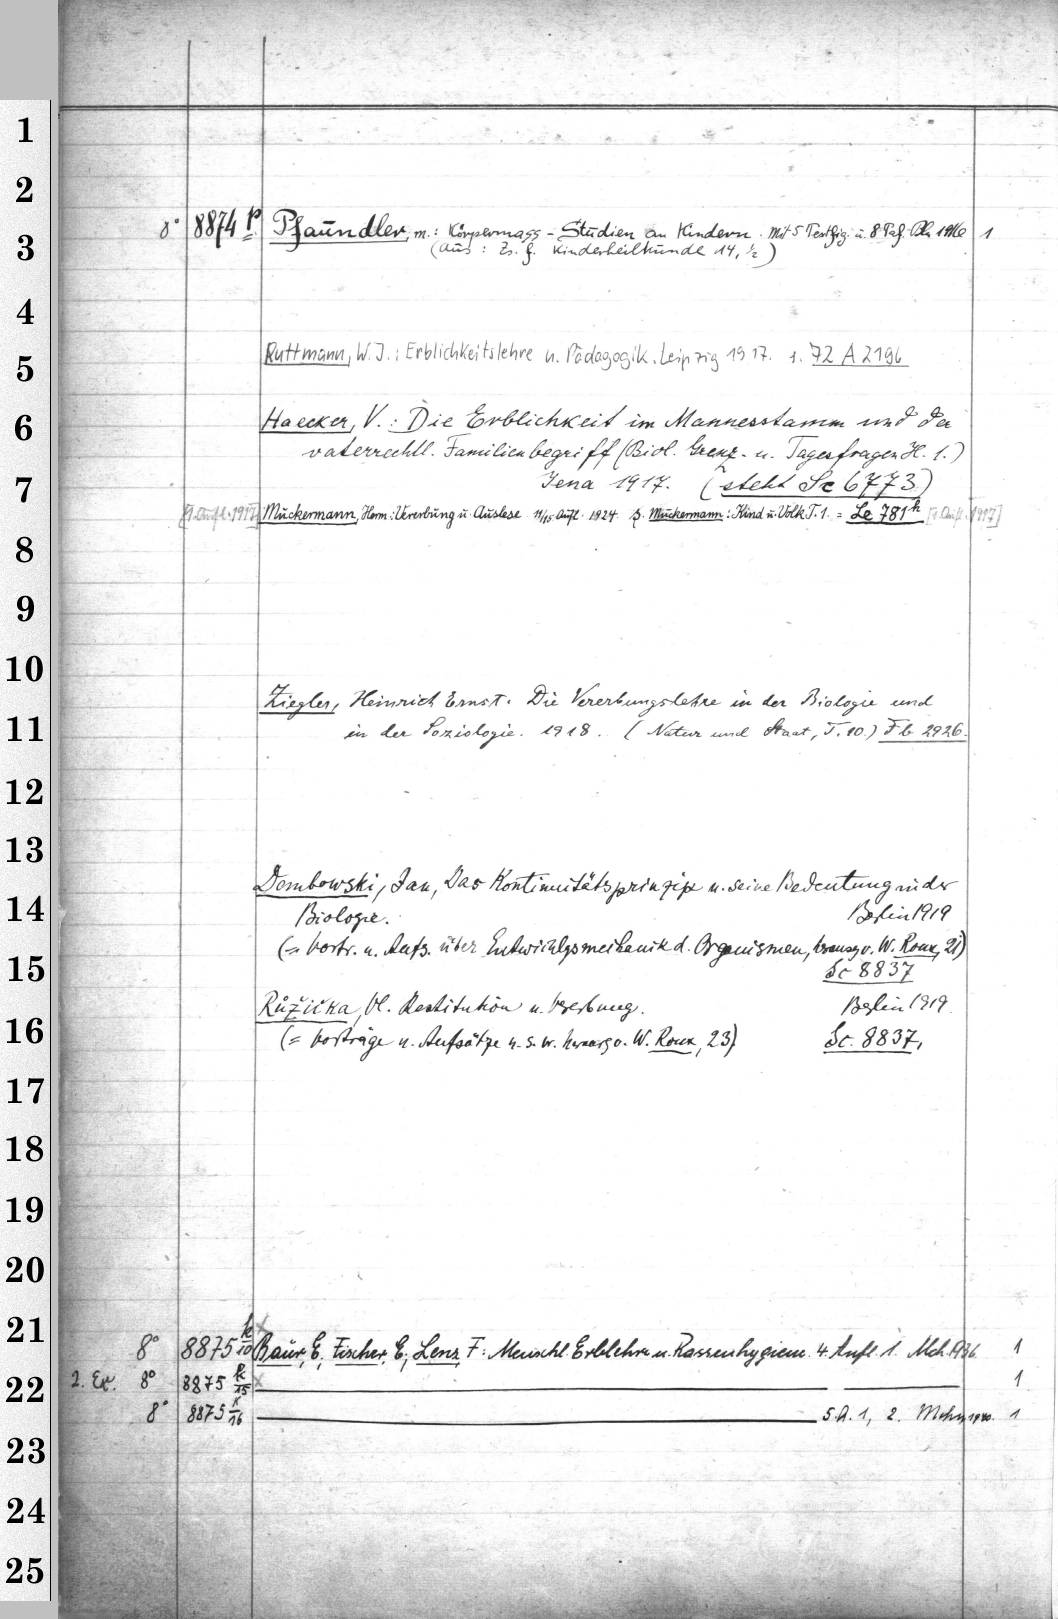 1
2
3
4
5
6
7
8
9
10
11
12
13
14
15
16
17
18
19
20
21
22
23
24
25
8° 8874 p Pfaundler, M.: Körpermass-Studien an Kindern. Mit 5 Textfig. u. 8 Taf. Bln 1916 1
(aus: Zs. f. Kinderheilkunde 14, 1/2)
Ruttmann, W. J.: Erblichkeitslehre u. Pädagogik. Leipzig 1917. 1. 72 A 2196
Haecker, V.: Die Erblichkeit im Mannesstamm und der
vaterrechtl. Familienbegriff (Biol. Grenz- u. Tagesfragen H. 1.)
Jena 1917. (steht Sc 6773)
[1. Aufl. 1917] Muckermann, Herm: Vererbung u. Auslese 14/15 Aufl. 1924 s. Muckermann: Kind u. Volk T. 1. = Le 781 h [1. Aufl. 1917]
Ziegler, Heinrich Ernst. Die Vererbungslehre in der Biologie und
in der Soziologie. 1918. (Natur und Staat, T. 10.) Fb 2926.
Dembowski, Jan, Das Kontinuitätsprinzip u. seine Bedeutung in der
Biologie. Berlin 1919
(= Vortr. u. Aufs. über Entwicklgsmechanik d. Organismen, herausg v. W. Roux, 21)
Sc 8837
Růžička, Vl. Restitution u. Vererbung. Berlin 1919.
(= Vorträge u. Aufsätze u. s. w. herausg v. W. Roux, 23) Sc. 8837.
8° 8875 k/10 Baur, E., Fischer, E., Lenz, F: Menschl. Erblehre u. Rassenhygiene. 4. Aufl. 1. Mch. 1936. 1
2. Ex. 8° 8875 k/15 1
8° 8875 k/16 5. A. 1, 2. Mchn 1940. 1